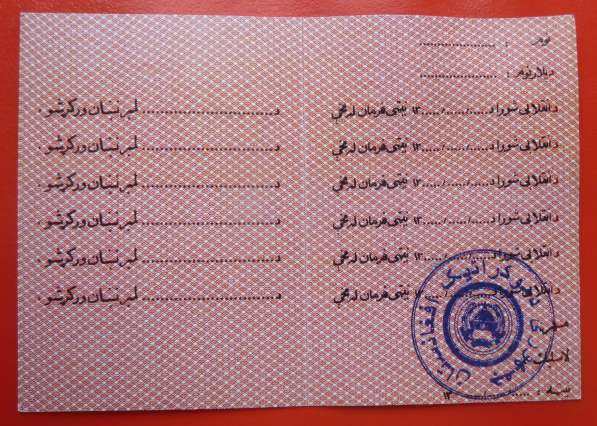 نوم : ....................
د پلار نوم : ....................
د انقلابي شورا د ...../...../.....۱۳ نېټې فرمان له مخې د.............................. لمبر نښان ورکړشو .
د انقلابي شورا د ...../...../.....۱۳ نېټې فرمان له مخې د.............................. لمبر نښان ورکړشو .
د انقلابي شورا د ...../...../.....۱۳ نېټې فرمان له مخې د.............................. لمبر نښان ورکړشو .
د انقلابي شورا د ...../...../.....۱۳ نېټې فرمان له مخې د.............................. لمبر نښان ورکړشو .
د انقلابي شورا د ...../...../.....۱۳ نېټې فرمان له مخې د.............................. لمبر نښان ورکړشو .
د انقلابي شورا د ...../...../.....۱۳ نېټې فرمان له مخې د.............................. لمبر نښان ورکړشو .
جمهوری دموکراتیک افغانستان
مهر
لاسلیک
نېټه : ...../...../.....۱۳